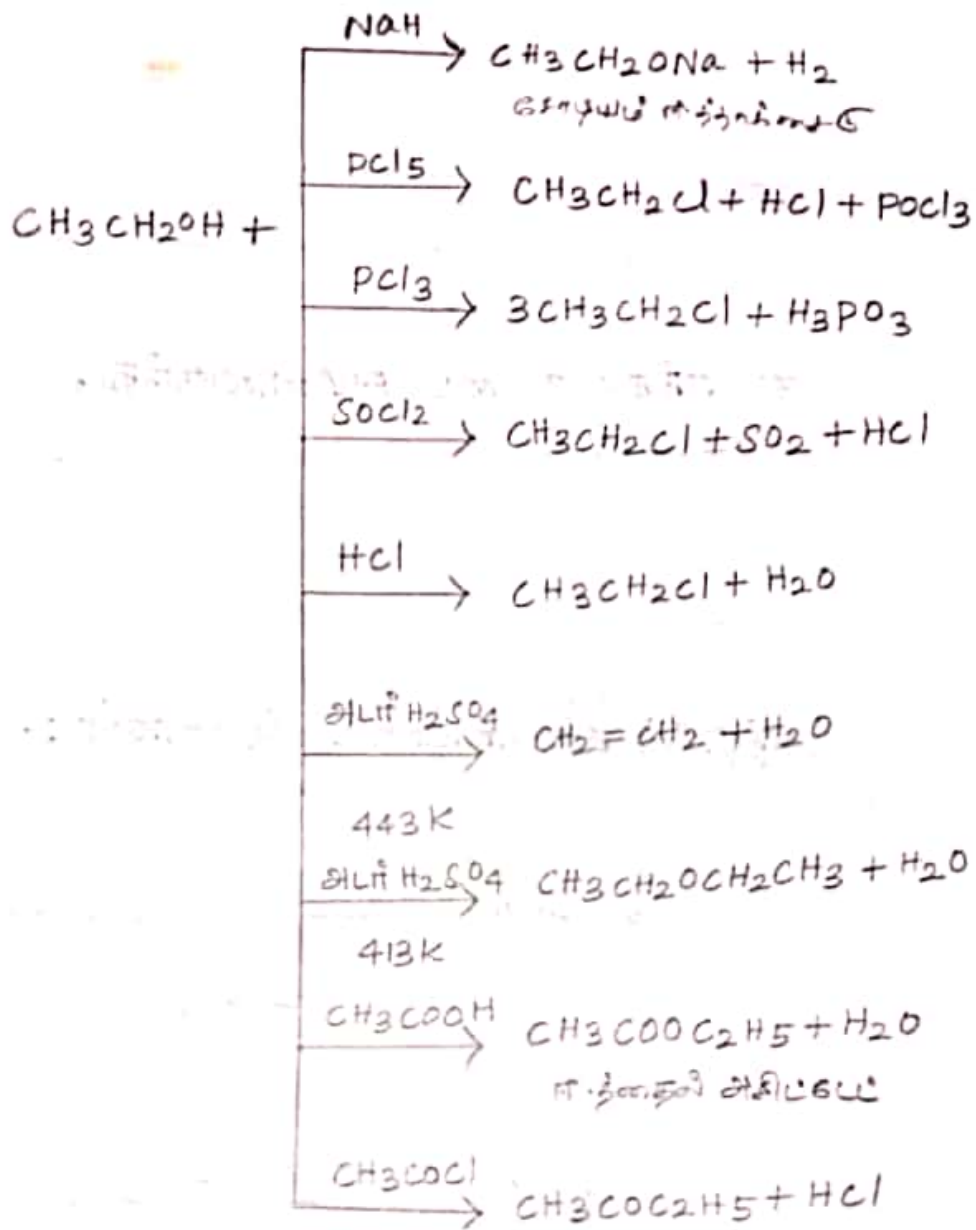 NaH
CH3CH2ONa + H2
சோடியம் ஈத்தாக்சைடு
PCl5
CH3CH2Cl + HCl + POCl3
CH3CH2OH +
PCl3
3CH3CH2Cl + H3PO3
SOCl2
CH3CH2Cl + SO2 + HCl
HCl
CH3CH2Cl + H2O
அடர் H2SO4
CH2 = CH2 + H2O
443K
அடர் H2SO4
CH3CH2OCH2CH3 + H2O
413K
CH3COOH
CH3COOC2H5 + H2O
அசிட்டேட்
CH3COCl
CH3COC2H5 + HCl